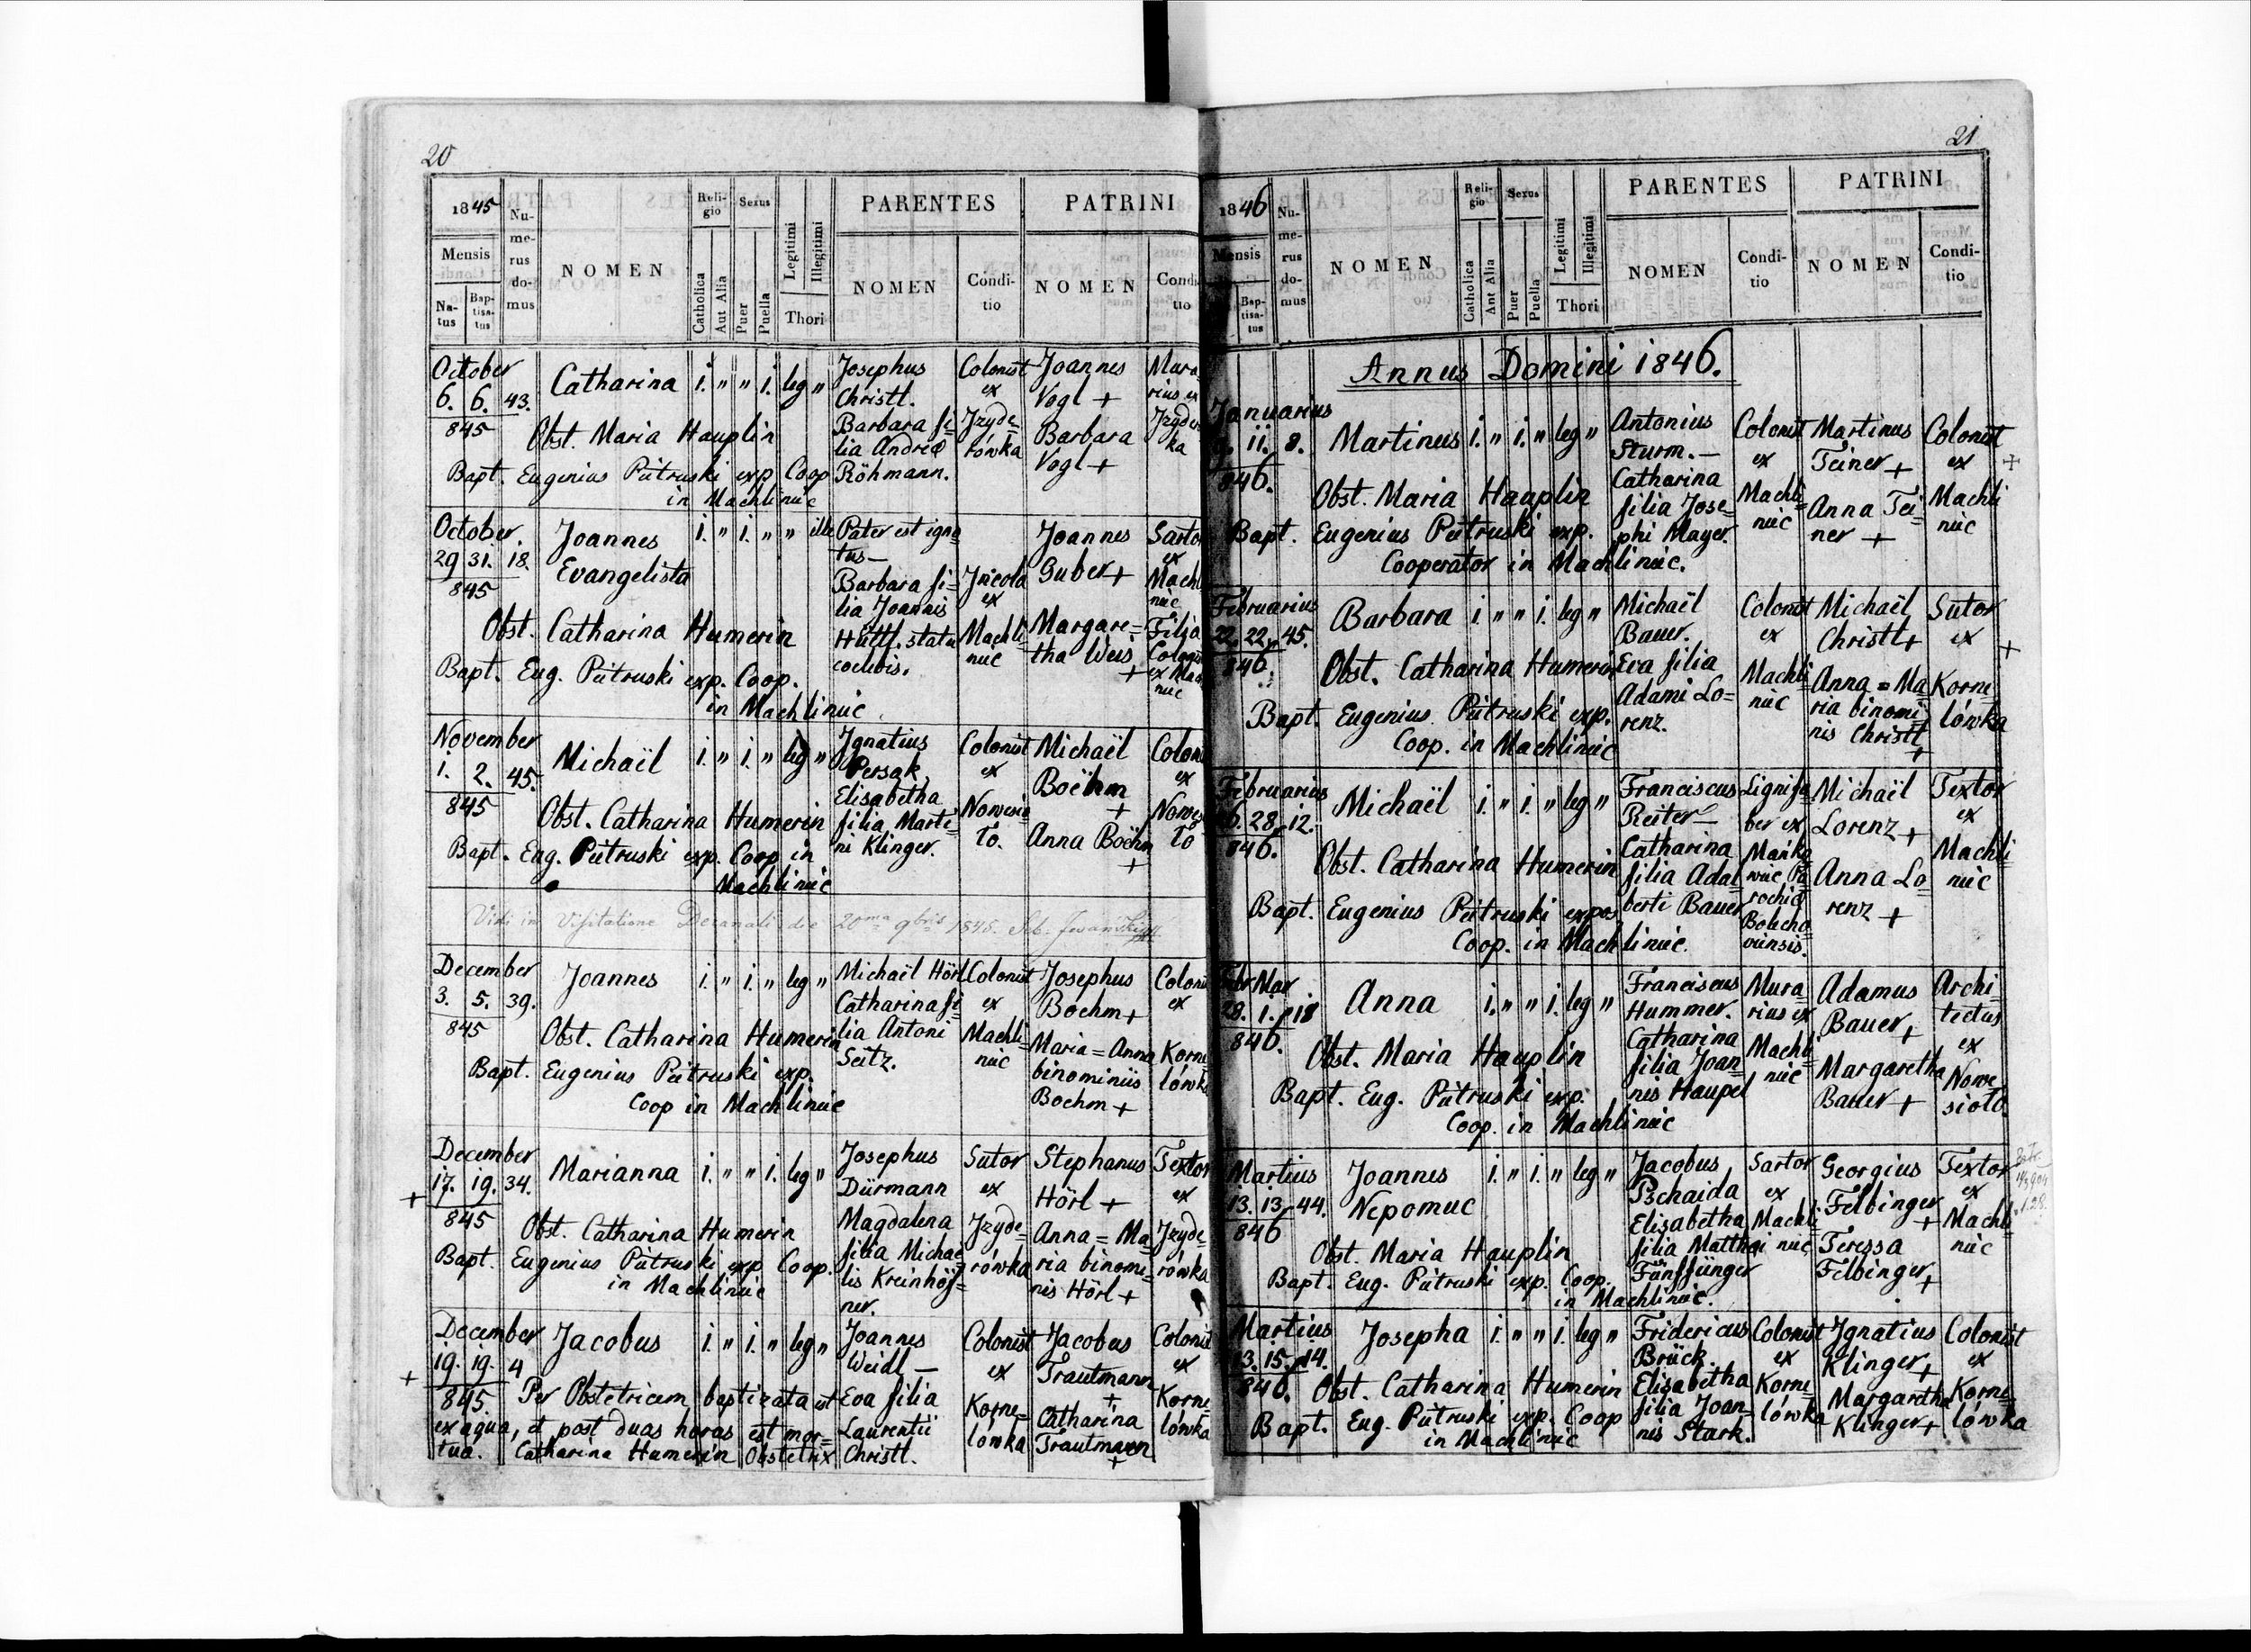 20
1845
Numerus domus
NOMEN
Religio
Sexus
Legitimi
Illegitimi
PARENTES
PATRINI
Mensis
Natus
Baptisatus
Catholica
Aut Alia
Puer
Puella
Thori
NOMEN
Conditio
NOMEN
Conditio
October
6. 6. 43.
845
Catharina i. " " i. leg "
Obst. Maria Hauplin
Bapt. Eugenius Pietruski exp Coop
in Machliniec
Josephus
Christl.
Barbara fi=
lia Andreæ
Röhmann.
Colonist
ex
Jzyde=
rówka
Joannes
Vogl +
Barbara
Vogl +
Mura
rius ex
Jzyde
ka
October.
29 31. 18.
845
Joannes i. " i. " " ille
Evangelista
Obst. Catharina Humerin
Bapt. Eug. Pietruski exp. Coop.
in Machliniec
Pater est igno
tus—
Barbara fi=
lia Joannis
Hüttl. statu
coelibis.
Jncola
ex
Machli
niec
Joannes
Guber +
Margare=
tha Weis
+
Sartor
ex
Machl
niec
Filia
ex Mach
niec
November
1. 2. 45.
845
Michaël i. " i. " leg "
Obst. Catharina Humerin
Bapt. Eug. Pietruski exp. Coop in
Machliniec
Jgnatius
Persak,
Elisabetha
filia Marti=
ni Klinger.
Colonist
ex
Nowesio
ło.
Michaël
Boëhm
+
Anna Boëhm
+
Colon
ex
Nowe
ło
Vidi in Visitatione Decanali die 20ma 9bris 1845.
December
3. 5. 39.
845
Joannes i. " i. " leg "
Obst. Catharina Humerin
Bapt. Eugenius Pietruski exp.
Coop in Machliniec
Michaël Hörl
Catharina fi=
lia Antoni
Seitz.
Colonist
ex
Machli=
niec
Josephus
Boehm +
Maria = Anna
binominiis
Boehm +
Coloni
ex
Korne
lówka
December
17. 19. 34.
+
845
Marianna i. " " i. leg "
Obst. Catharina Humerin
Bapt. Eugenius Pietruski exp Coop.
in Machliniec
Josephus
Dürmann
Magdalena
filia Michae
lis Kreinhöf=
ner.
Sutor
ex
Jzyde=
rówka
Stephanus
Hörl +
Anna = Ma=
ria binomi=
nis Hörl +
Textor
ex
Jzyde=
rówka
December
19. 19. 4
+
845.
Jacobus i. " i. " leg "
Per Obstetricem baptizata est
ex aqua, et post duas horas est mor=
tua. Catharina Humerin Obstetrix
Joannes
Weidl —
Eva filia
Laurentii
Christl.
Colonist
ex
Korne=
lówka
Jacobus
Trautmann
+
Catharina
Trautmann
+
Colonist
ex
Korne
lówka
21
1846
Numerus domus
NOMEN
Religio
Sexus
Legitimi
Illegitimi
PARENTES
PATRINI
Mensis
Baptisatus
Catholica
Aut Alia
Puer
Puella
Thori
NOMEN
Conditio
NOMEN
Conditio
Annus Domini 1846.
Januarius
9. 11. 8.
846.
Martinus i. " i. " leg "
Obst. Maria Hauplin
Bapt. Eugenius Pietruski exp.
Cooperator in Machliniec.
Antonius
Sturm.—
Catharina
filia Jose=
phi Mayer.
Colonist
ex
Machli
niec
Martinus
Teiner +
Anna Tei=
ner +
Colonist
ex
+
Machli
niec
Februarius
22. 22. 45.
846
Barbara i. " " i. leg "
Obst. Catharina Humerin
Bapt. Eugenius Pietruski exp.
Coop. in Machliniec
Michaël
Bauer.
Eva filia
Adami Lo=
renz.
Colonist
ex
Machli
niec
Michaël
Christl +
Anna = Ma
ria binomi
nis Christl
+
Sutor
ex
+
Korne
lówka
Februarius
26. 28. 12.
846.
Michaël i. " i. " leg "
Obst. Catharina Humerin
Bapt. Eugenius Pietruski expos
Coop. in Machliniec.
Franciscus
Reiter—
Catharina
filia Adal
berti Bauer
Lignifa
ber ex
Mańko
wiec Pa
rochiæ
Bolecho
viensis.
Michaël
Lorenz +
Anna Lo
renz +
Textor
ex
Machli=
niec
Febr Mar
28. 1. 18
846.
Anna i. " " i. leg "
Obst. Maria Hauplin
Bapt. Eug. Pietruski exp.
Coop. in Machliniec
Franciscus
Hummer.
Catharina
filia Joan
nis Haupel
Mura=
rius ex
Machli
niec
Adamus
Bauer +
Margaretha
Bauer +
Archi=
tectus
ex
Nowe
sioło.
Martius
13. 13. 44.
846
Joannes i. " i. " leg "
Nepomuc
Obst. Maria Hauplin
Bapt. Eug. Pietruski exp. Coop.
in Machliniec.
Jacobus
Pschaida
Elisabetha
filia Matthæi
Fünffünger
Sartor
ex
Machli
niec
Georgius
Felbinger
+
Teressa
Felbinger
+
Textor
ex
Machli
niec
Martius
13. 15. 14.
846.
Josepha i. " " i. leg "
Obst. Catharina Humerin
Bapt. Eug. Pietruski exp. Coop
in Machliniec
Fridericus
Brück.
Elisabetha
filia Joan
nis Stark.
Colonist
ex
Korne=
lówka
Jgnatius
Klinger +
Margaretha
Klinger +
Colonist
ex
Korne=
lówka